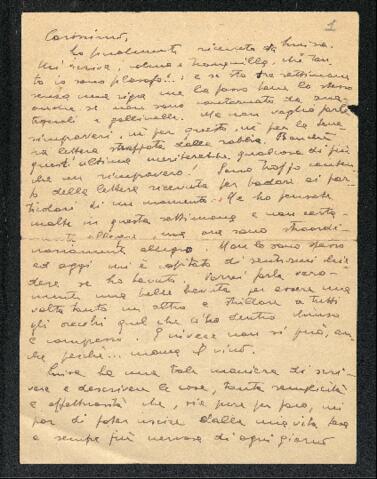 1
Carissimo,
Ho finalmente ricevuto da Luisa.
Mi scriva, calma e tranquilla, che tan
to io sono filosofo!... e se sto tre settimane
senza una riga me la passo bene lo stesso
anche se non sono contornato da
e gallinelle. Ma non voglio farti
rimproveri, nè per questo, nè per la tua
lettera strappata dalla rabbia. Benchè
quest'ultima meriterebbe qualcosa di più
che un rimprovero! Sono troppo conten
to della lettera ricevuta per badare ai par
ticolari di un momento. Ce ho pensate
molte in questa settimana e non certa
mente allegre, ma ora sono straordi
nariamente allegro. Non lo sono spesso
ed oggi mi è capitato di sentirmi chie
dere se ho bevuto. Vorrei farla vera
mente una bella bevuta per essere una
volta tanto un altro e stridare a tutti
gli orecchi quel che c'ho dentro chiuso
e compresso. E invece non si può, an
che perchè... manca il vino.
Luisa ha una tale maniera di scri
vere e descrivere le cose, tanta semplicità
e affettuosità che, sia pure per poco, mi
par di poter uscire dalla mia vita
e sempre più nervosa di ogni giorno